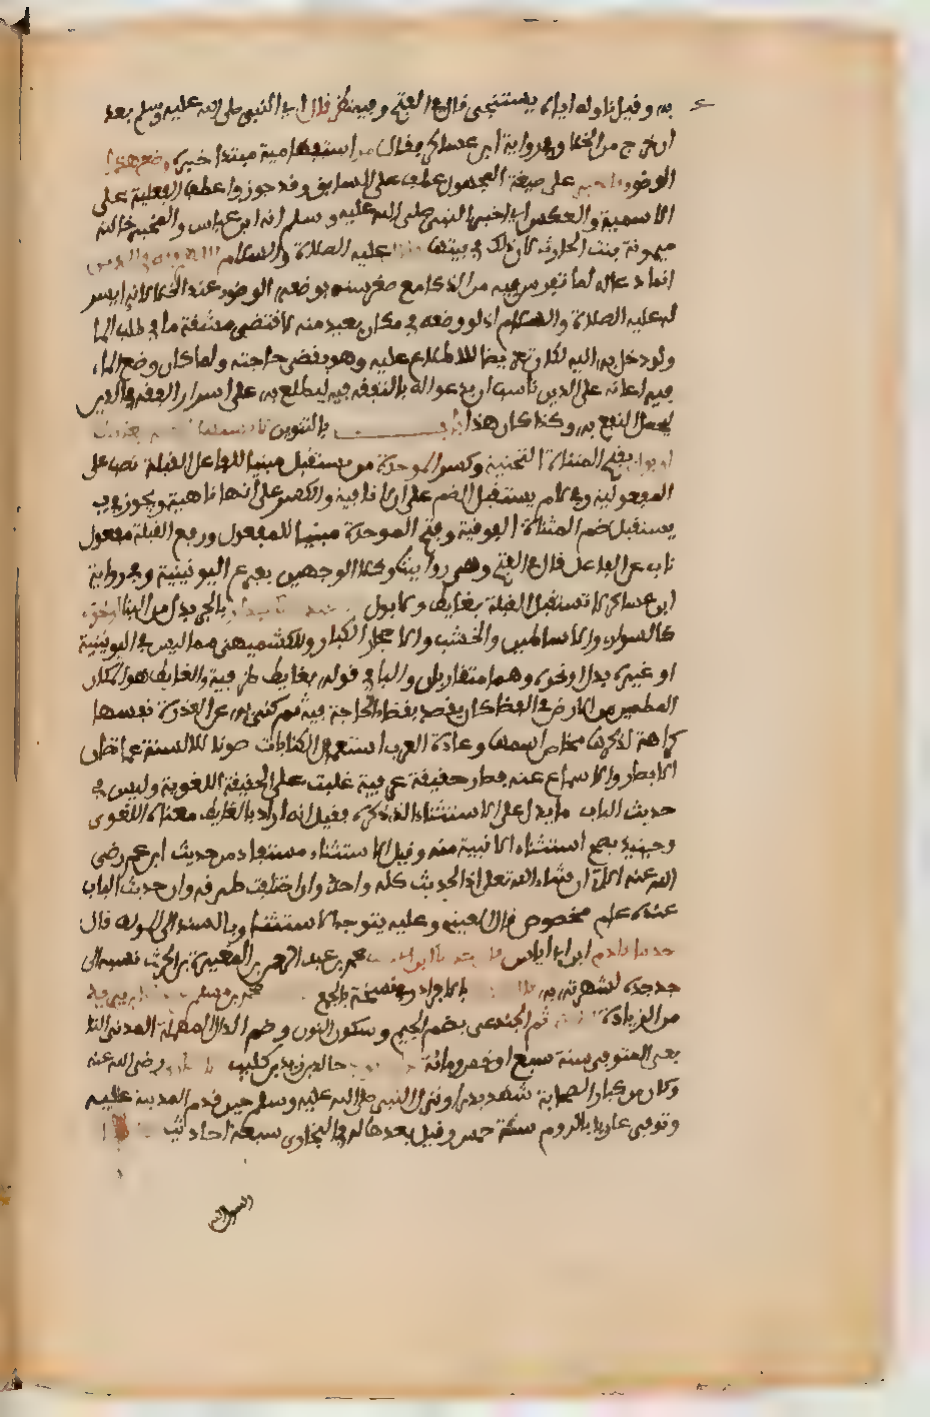 به وقيل ناوله اياه يستنجى قال في الفتح وفيه نظر قال اي النبي صلى الله عليه وسلم بعد
ان خرج من الخلا وفي رواية ابن عساكر فقال من استفهامية مبتدا خبره وضع هذا
الوضوء فاخبر على صيغة المجهول عطف على السابق وقد جوزوا عطف الفعلية على
الاسمية والعكس اي اخبر النبي صلى الله عليه وسلم انه ابن عباس والمخبر خالته
ميمونة بنت الحارث لان ذلك في بيتها عليه الصلاة والسلام اللهم فقهه في الدين
انما دعا له لما تفرس فيه من الذكا مع صغر سنه بوضعه الوضوء عند الخلا لانه ايسر
له عليه الصلاة والسلام اذ لو وضعه في مكان بعيد منه لاقتضى مشقة ما في طلب الما
ولو دخل به اليه لكان تعريضا للاطلاع عليه وهو يقضي حاجته ولما كان وضع الماء
فيه اعانة على الدين ناسب ان يدعو له بالتفقه فيه ليطلع به على اسرار الفقه في الدين
ليحصل النفع به وكذا كان هذا باب بالتنوين
بفتح المثناة التحتية وكسر الموحدة من يستقبل مبنيا للفاعل القبلة نصب على
المفعولية وفي لام يستقبل الضم على ان لا نافية والكسر على انها ناهية ويجوز في
يستقبل ضم المثناة الفوقية وفتح الموحدة مبنيا للمفعول ورفع القبلة مفعول
ناب عن الفاعل قال في الفتح وهي روايتنا وكلا الوجهين بفرع اليونينية وفي رواية
ابن عساكر لا تستقبل القبلة بغايط ولا بول بالجر بدل من البنا او نحوه
كالسواري والاساطين والخشب والاحجار الكبار وللكشميهني مما ليس في اليونينية
او غيره بدل او نحوه وهما متقاربان والبا في قوله بغايط ظرفية والغايط هو المكان
المطمئن من الارض في الفضا كان يقصد لقضاء الحاجة فيه ثم كنى به عن العذرة نفسها
كراهة لذكرها بخاص اسمها وعادة العرب استعمال الكنايات صونا للالسنة عما تصان
الابصار والاسماع عنه فصار حقيقة عرفية غلبت على الحقيقة اللغوية وليس في
حديث الباب ما يدل على الاستثناء الذي ذكره فقيل انه اراد بالغايط معناه اللغوي
وحينيذ يصح استثناء الابنية منه وقيل الاستثناء مستفاد من حديث ابن عمر رضي
الله عنه الاتي ان شاء الله تعالى اذ الحديث كله واحد وان اختلفت طرقه وان حديث الباب
عنده عام مخصوص قال العيني وعليه يتوجه الاستثنا وبالسند الى المولف قال
حدثنا ادم ابن ابي اياس محمد بن عبد الرحمن بن المغيرة بن الحرث نسبه الى
جد جده لشهرته به بالافراد بالجمع محمد بن مسلم
من الزيادة ثم الجندعي بضم الجيم وسكون النون وضم الدال المهملة المدني التا
بعي المتوفي سنة سبع او خمس ومائة خالد بن زيد بن كليب رضي الله عنه
وكان من كبار الصحابة شهد بدرا ونزل النبي صلى الله عليه وسلم حين قدم المدينة عليه
وتوفي غازيا بالروم سنة خمسين وقيل بعدها له في البخاري سبعة احاديث